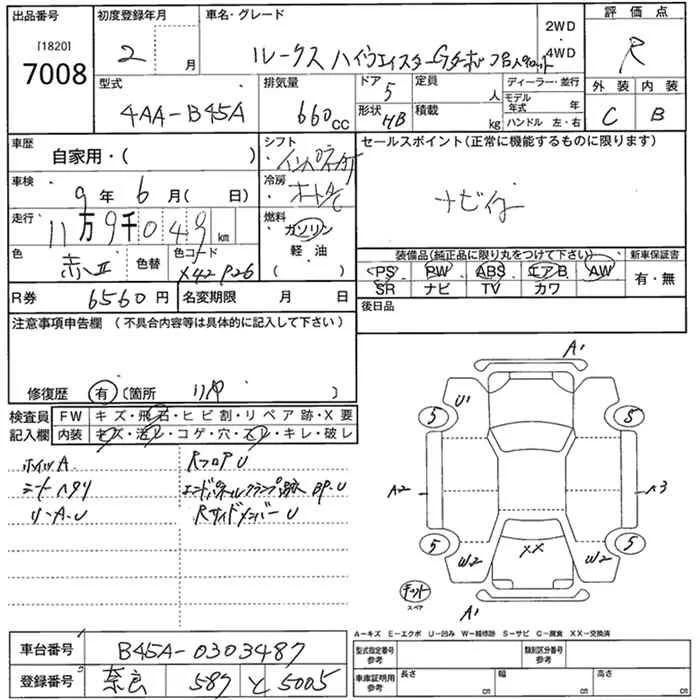 出品番号 初度登録年月 車名・グレード 評価点
[1820] 2 月 ルークス ハイウェイスターGターボ 2WD 4WD R
7008
型式 排気量 ドア 5 定員 人 ディーラー・並行 外装 内装
4AA-B45A 660cc 形状 HB 積載 kg モデル年式 年 C B
ハンドル 左・右
車歴 自家用・( ) シフト インパネAT セールスポイント(正常に機能するものに限ります)
車検 9年 6月( 日) 冷房 オートAC ナビ付
走行 11万9千049km 燃料 ガソリン
軽油
( )
色 赤II 色替 色コード X42 P26
装備品(純正品に限り丸をつけて下さい) 新車保証書
PS PW ABS エアB AW 有・無
SR ナビ TV カワ
R券 6560円 名変期限 月 日 後日品
注意事項申告欄(不具合内容等は具体的に記入して下さい)
修復歴 有 〔箇所 リア 〕
検査員記入欄 FW キズ・飛石・ヒビ割・リペア跡・X要
内装 キズ・汚レ・コゲ・穴・スレ・キレ・破レ
ホイルA RフロアU
シートヘタリ
リーA-U RサイドメンバーU
A1
U1
5 5
A2 A3
5 5
W2 XX W2
スペア
A1
A-キズ E-エクボ U-凹み W-補修跡 S-サビ C-腐食 XX-交換済
車台番号 B45A-0303487 型式指定番号 参考 類別区分番号 参考
登録番号 奈良 587 と 5005 車庫証明用 参考 長さ cm 幅 cm 高さ cm